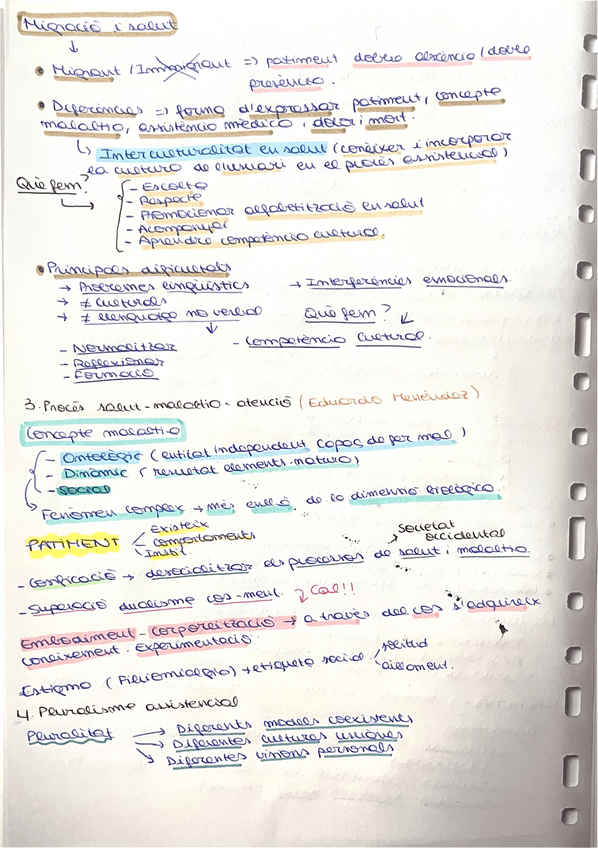 Migració i salut
↓
• Migrant / Immigrant => patiment doble absència / doble
presència.
• Diferències => forma d'expressar patiment, concepte
malaltia, assistència mèdica, dolor i mort.
↳ Interculturalitat en salut (conèixer i incorporar
la cultura de l'usuari en el procés assistencial)
Què fem?
- Escolta
- Respecte
- Promocionar alfabetització en salut
- Acompanyar
- Aprendre competència cultural.
• Principals dificultats
→ Problemes lingüístics → Interferències emocionals.
→ ≠ culturals
→ ≠ llenguatge no verbal Què fem?
- Normalitzar - Competència cultural.
- Reflexionar
- Formació
3. Procés salut-malaltia-atenció (Eduardo Menéndez)
Concepte malaltia
- Ontològic (entitat independent capaç de fer mal)
- Dinàmic (resultat elements natura)
- Social
↳ Fenomen complex → més enllà de la dimensió biològica.
PATIMENT
Existeix
comportaments
Instit.
societat
occidental
- Cosificació → desocialitzar els processos de salut i malaltia.
- Superació dualisme cos-ment. Cal!!
Embodiment - corporeïtzació → a través del cos s'adquireix
coneixement. Experimentació
Estigma (Fibromiàlgia) → etiqueta social
solitud
aïllament.
4. Pluralisme assistencial
Pluralitat → Diferents models coexistents
→ Diferentes cultures
→ Diferentes visions personals